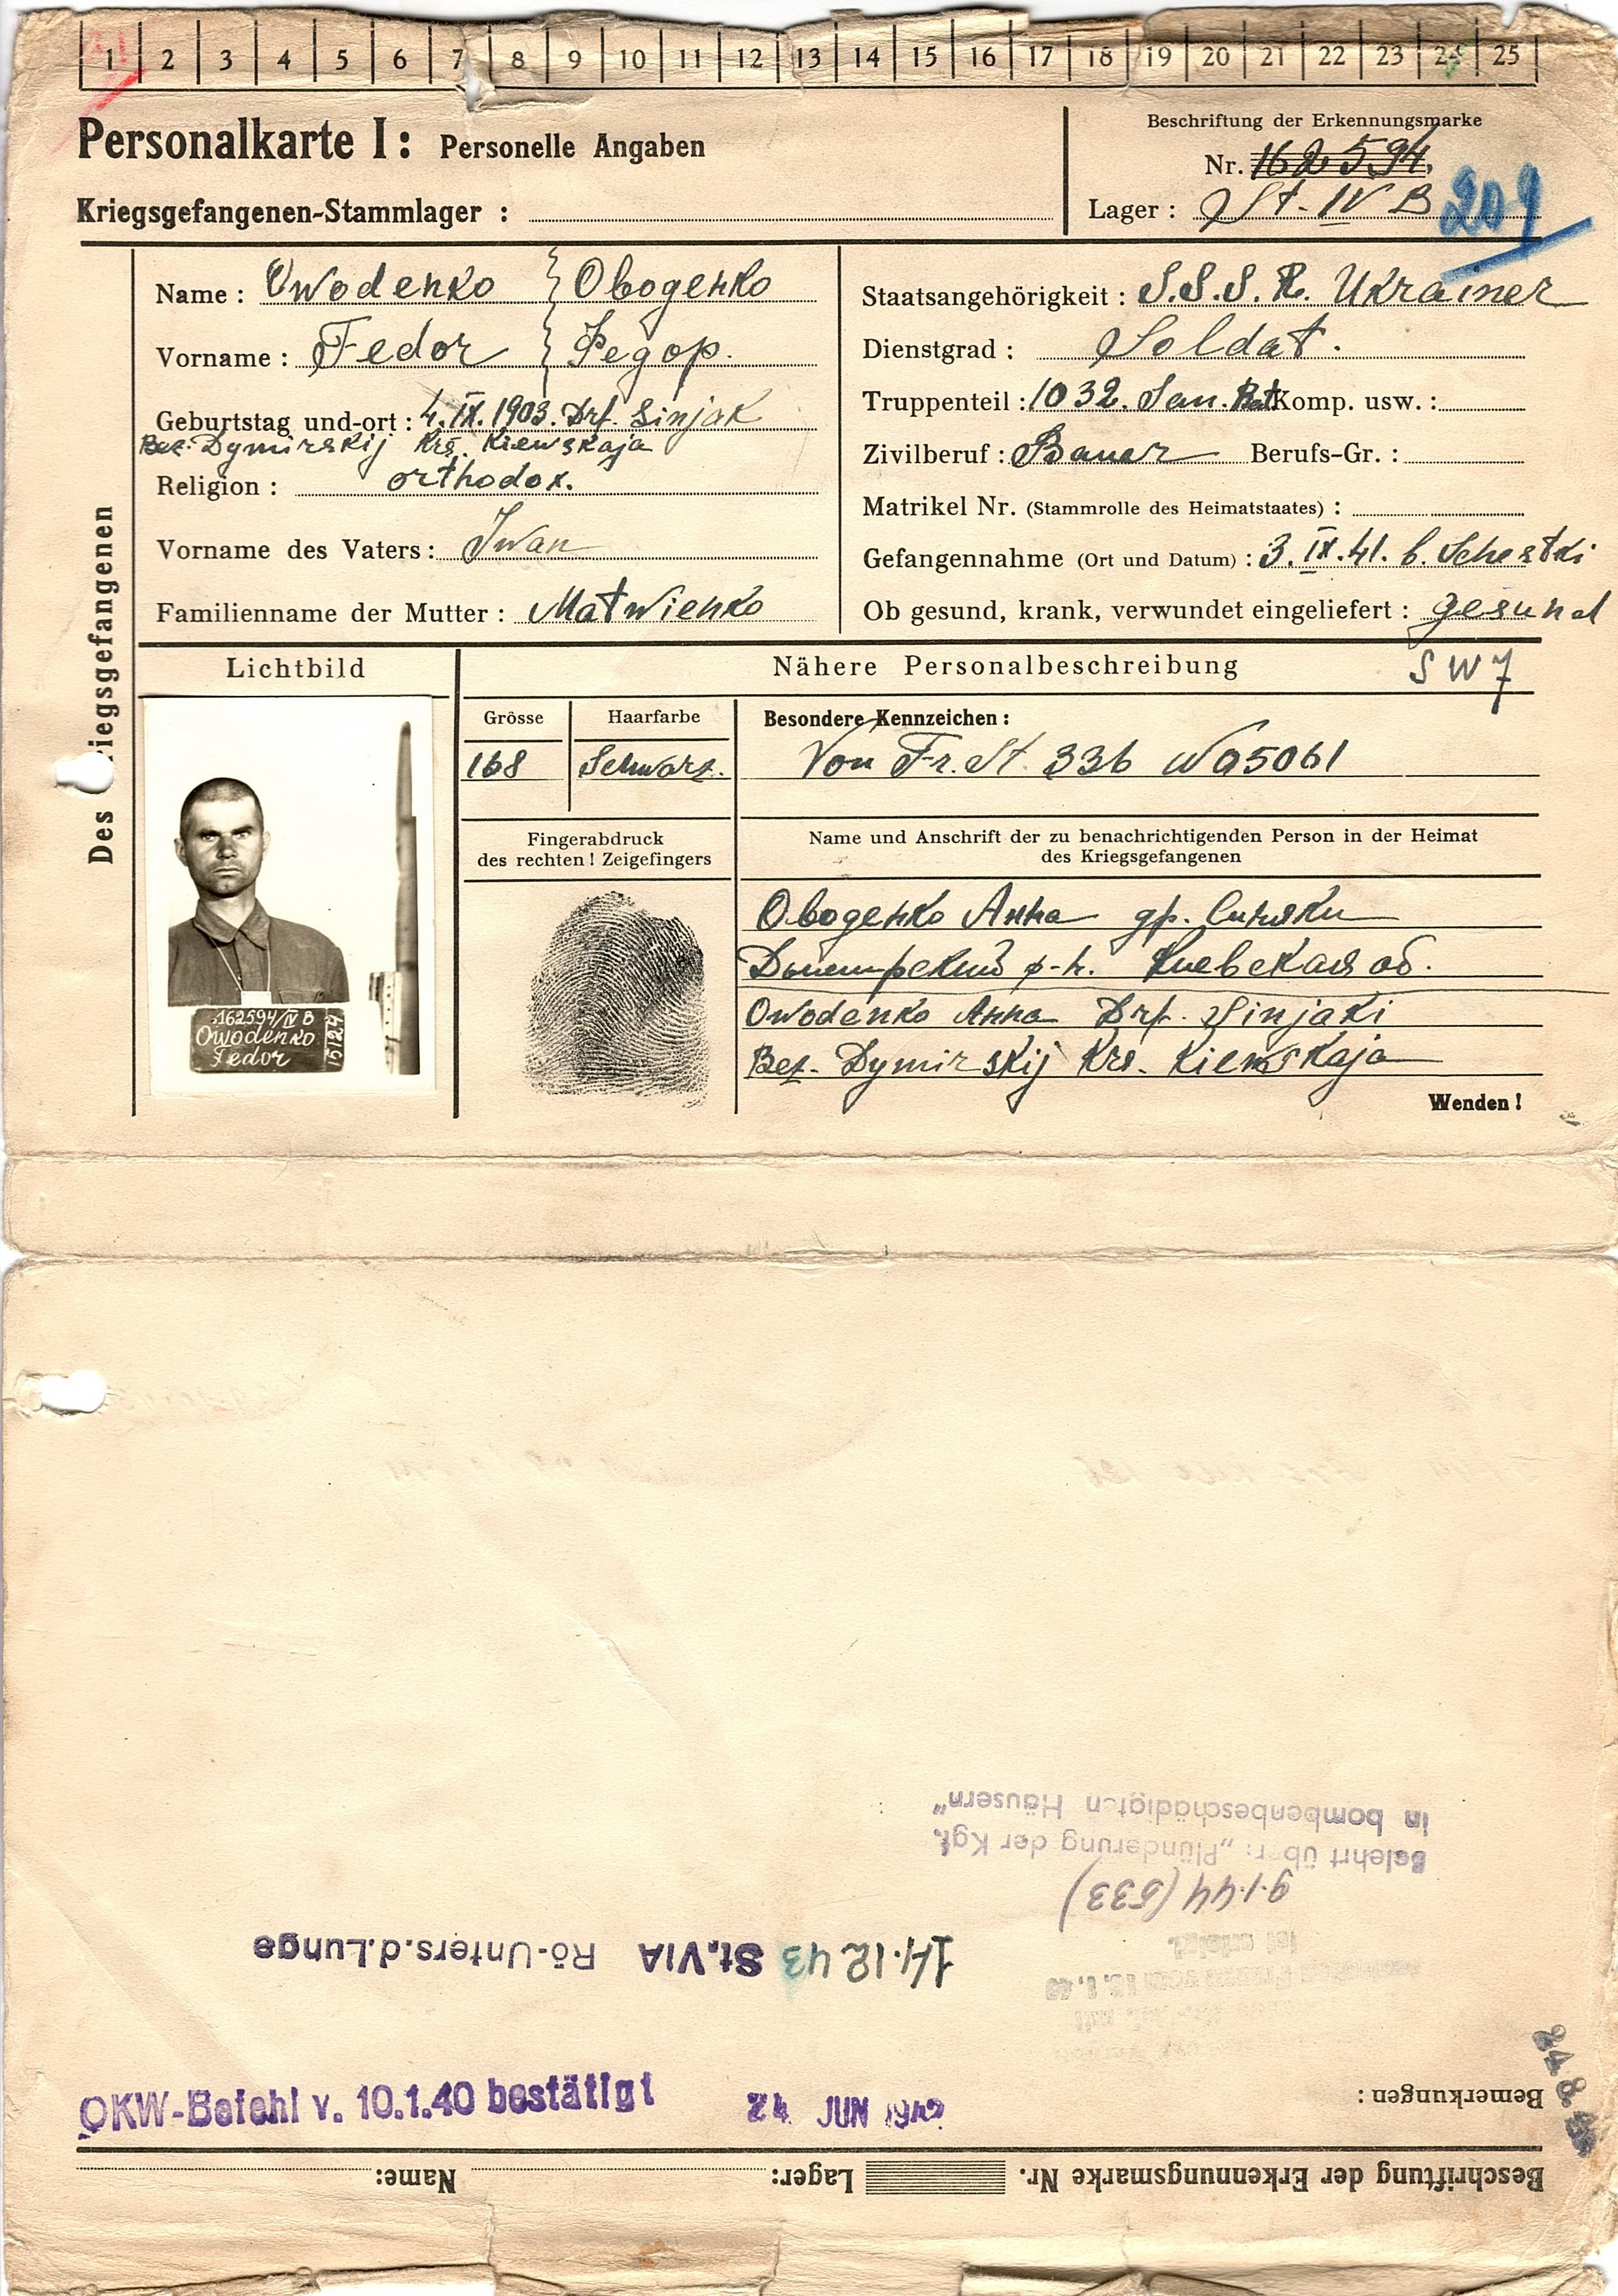 1 2 3 4 5 6 7 8 9 10 11 12 13 14 15 16 17 18 19 20 21 22 23 24 25
Personalkarte I: Personelle Angaben
Kriegsgefangenen-Stammlager :
Beschriftung der Erkennungsmarke
Nr. 162594
Lager : St. IV B
209
Des Kriegsgefangenen
Name : Owodenko Ободенко
Vorname : Fedor Федор.
Geburtstag und-ort : 4.IX.1903. Drf. Sinjak
Bez. Dymirskij Krs. Kiewskaja
Religion : orthodox.
Vorname des Vaters : Iwan
Familienname der Mutter : Matwienko
Staatsangehörigkeit : S.S.S.R. Ukrainer
Dienstgrad : Soldat.
Truppenteil : 1032. San. Bat Komp. usw. :
Zivilberuf : Bauer Berufs-Gr. :
Matrikel Nr. (Stammrolle des Heimatstaates) :
Gefangennahme (Ort und Datum) : 3.IX.41. b.
Ob gesund, krank, verwundet eingeliefert : gesund
Lichtbild
162594/IV B
Owodenko
Fedor
Nähere Personalbeschreibung
S W 7
Grösse
168
Haarfarbe
Schwarz.
Besondere Kennzeichen :
Von Fr. St. 336
Fingerabdruck
des rechten! Zeigefingers
Name und Anschrift der zu benachrichtigenden Person in der Heimat
des Kriegsgefangenen
Ободенко Анна
р-н. Киевская об.
Owodenko Anna Drf. Sinjaki
Bez. Dymirskij Krs. Kiewskaja
Wenden!
Beschriftung der Erkennungsmarke Nr. Lager: Name:
Bemerkungen :
24 JUN 1942
OKW-Befehl v. 10.1.40 bestätigt
14.12.43 St.VIA Rö-Unters.d.Lunge
9.1.44 (533)
Belehrt über: „Plünderung der Kgf.
in bombenbeschädigten Häusern"